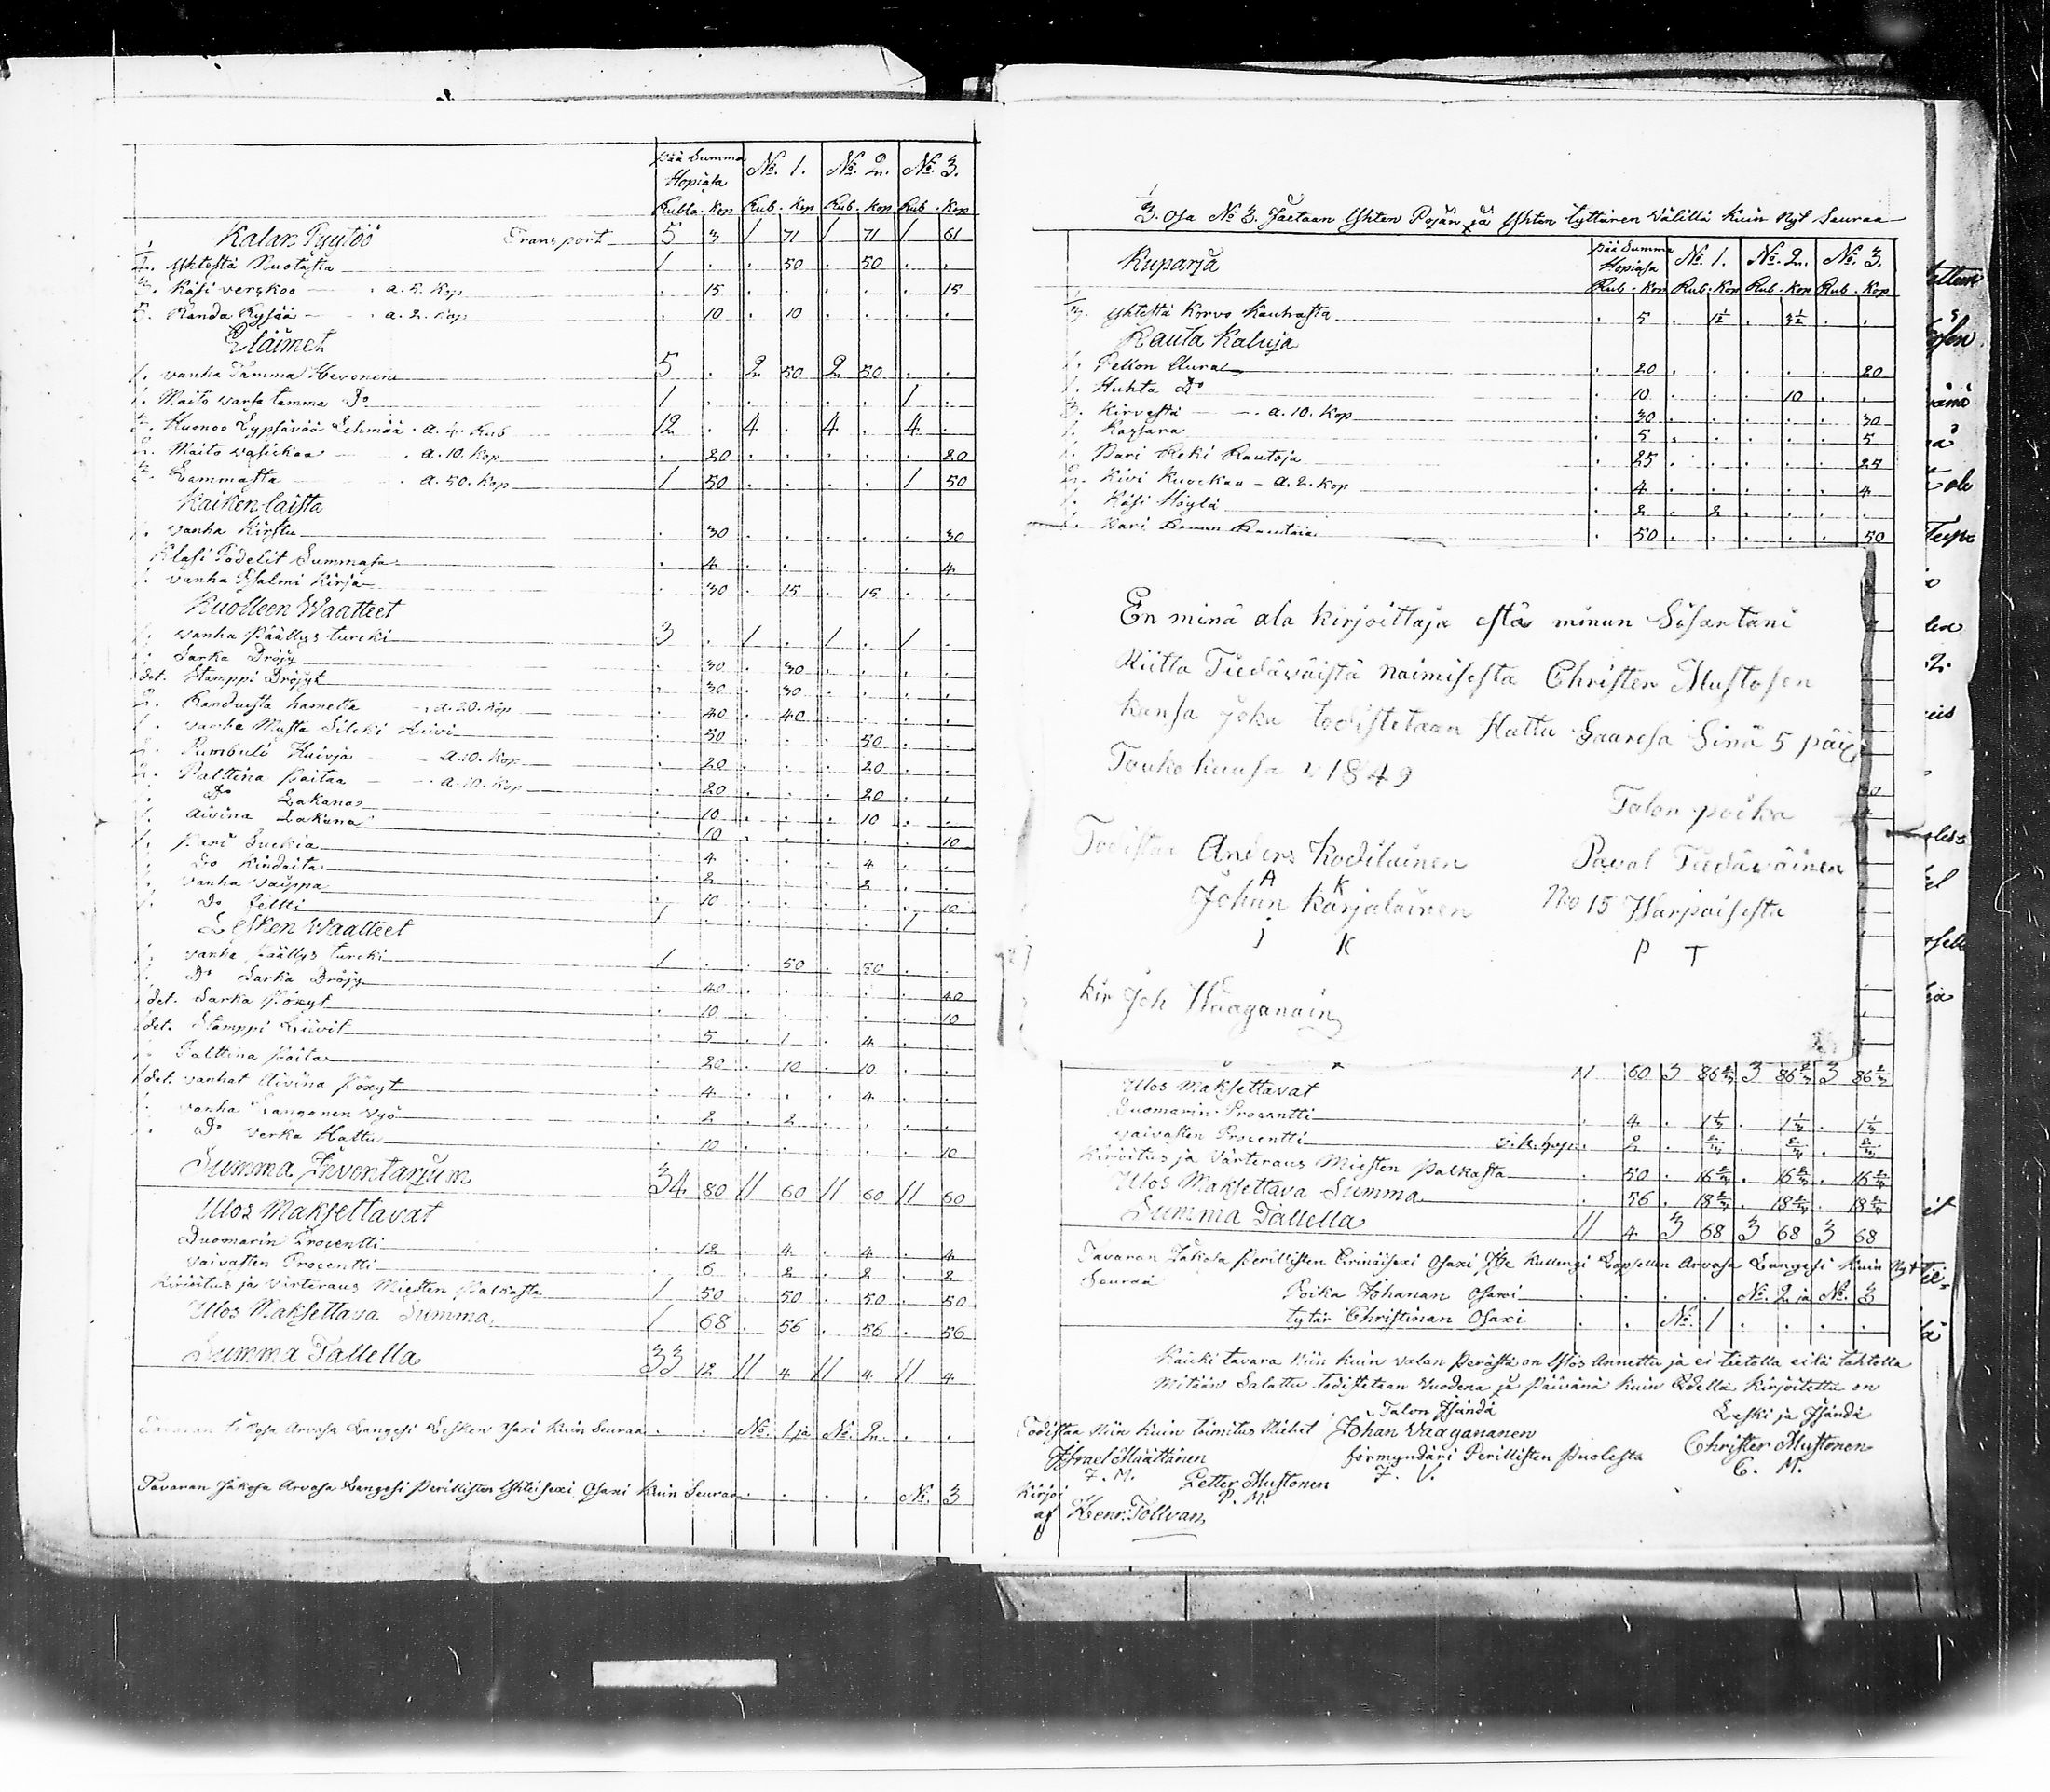 Pää Summa Hopiasa No. 1. No. 2. No. 3.
Rubla. Kop Rub. Kop Rub. Kop Rub. Kop
Kalan Pyytöö Transport 5 3 1 71 1 71 1 61
1/2. Yhtestä Nuotasta 1 . . 50 . 50 . .
3. Käsi verskoo . a. 5. Kop . 15 . . . . . 15
5. Randa Rysää . a. 2. Kop . 10 . 10 . . . .
Eläimet
1. vanha Tamma Hevonen 5 . 2 50 2 50 . .
1. Maito varsa tamma Do 1 . . . . . 1 .
3. Huonoo Lypsävöö Lehmää . a. 4. Rub 12 . 4 . 4 . 4 .
2. Maito vasickaa . a. 10. Kop . 20 . . . . . 20
3. Lammasta a. 50. Kop 1 50 . . . . 1 50
Kaiken laista
1. vanha Kirstu . 30 . . . . . 30
Klasi Podelit Summasa . 4 . . . . . 4
1. vanha Psalmi Kirja . 30 . 15 . 15 . .
Kuolleen Waatteet
1. vanha Päällys turcki 3 . 1 . 1 . 1 .
1. Sarka Dröjy . 30 . 30 . . . .
1 det. Stamppi Dröjyt . 30 . 30 . . . .
2. Randuista hametta a. 20. Kop . 40 . 40 . . . .
1. vanha Musta Silcki Huivi . 50 . . . 50 . .
2. Pumbuli Huivja a. 10. Kop . 20 . . . 20 . .
2. Palttina Paitaa a. 10. Kop . 20 . . . 20 . .
1. Do Lakana . 10 . . . 10 . .
1. Aivina Lakana . 10 . . . . . 10
1. Pari Suckia . 4 . . . 4 . .
1. Do Kindaita . 2 . . . 2 . .
1. vanha vaippa . 10 . . . . . 10
1. Do feltti 1 . . . . . 1 .
Lesken Waatteet
1. vanha Päällys turcki 1 . . 50 . 50 . .
1. Do Sarka Dröjy . 40 . . . . . 40
1 det. Sarka Pöxyt . 10 . . . . . 10
1 det. Stamppi Liivit . 5 . 1 . 4 . .
1. Palttina Paita . 20 . 10 . 10 . .
1 det. vanhat Aivina Pöxyt . 4 . . . 4 . .
1. vanha Langanen vyö . 2 . 2 . . . .
1. Do verka Hattu . 10 . . . . . 10
Summa Inventarium 34 80 11 60 11 60 11 60
Ulos Maksettavat
Duomarin Procentti . 12 . 4 . 4 . 4
vaivasten Procentti . 6 . 2 . 2 . 2
Kirjoitus ja Värteraus Miesten Palkasta 1 50 . 50 . 50 . 50
Ulos Maksettava Summa 1 68 . 56 . 56 . 56
Summa Tallella 33 12 11 4 11 4 11 4
Tavaran Jakosa Arvasa Langesi Lesken osaxi Kuin Seuraa . . No. 1 ja No. 2 . .
Tavaran Jakosa Arvasa Langesi Perillisten Yhteisexi Osaxi Kuin Seuraa . . . . . No. 3
1/3. Osa No 3. Jaetaan Yhten Pojan ja Yhten tyttären Välillä Kuin Nyt Seuraa
Pää Summa Hopiasa No. 1. No. 2. No. 3.
Rub. Kop Rub. Kop Rub. Kop Rub. Kop
Kuparja
1/3. Yhtestä Korvo Kauhasta . 5 . 1 1/2 . 3 1/2 . .
Rauta Kaluja
1. Pellon Aura . 20 . . . . . 20
1. Huhta Do . 10 . . . 10 . .
3. Kirvestä a. 10. Kop . 30 . . . . . 30
1. Kassara . 5 . . . . . 5
1. Pari Reki Rautoja . 25 . . . . . 25
2. Kivi Kuockaa a. 2. Kop . 4 . . . . . 4
1. Käsi Höylä . 2 . 2 . . . .
1. Pari Rautoja . 50 . . . . . 50
En minä ala kirjoittaja estä minun Sisartani
Riitta Tiedäväistä naimisesta Christer Mustosen
kansa joka todistetaan Hattu Saaresa Sinä 5 päiv
Toukokuusa v 1849
Talon poika
Todistaa Anders Kodilainen Paval Tiedäväinen
A K
Johan Karjalainen No 15 Warpaisesta
J K P T
Kir Joh Wäaganain
11 60 3 86 2/3 3 86 2/3 3 86 2/3
Ulos Maksettavat
Duomarin Procentti . 4 . 1 1/3 . 1 1/3 . 1 1/3
vaivasten Procentti . 2 . 2/3 . 2/3 . 2/3
Kirjoitus ja Värteraus Miesten Palkasta . 50 . 16 2/3 . 16 2/3 . 16 2/3
Ulos Maksettava Summa . 56 . 18 2/3 . 18 2/3 . 18 2/3
Summa Tallella 11 4 3 68 3 68 3 68
Tavaran Jakosa Perillisten Erinäisexi Osaxi Itse Kullengi Lapsellen Arvasa Langesi Kuin Nyt
Seuraa Poika Johanan Osaxi . . . . No. 2 ja No. 3
tytär Christinan Osaxi . . No. 1 . . . .
Kaicki tavara niin kuin valan Perästä on Ylös Annettu ja ei tietolla eikä tahtolla
Mitään Salattu todistetaan Vuodena ja Päivänä Kuin Edellä Kirjoitettu on
Talon Isändä Leski ja Isändä
Todistaa Niin Kuin toimitus Miehet Johan Vaagananen Christer Mustonen
Israel Määttänen förmyndäri Perillisten Puolesta C. M.
I. M. J. V.
Petter Mustonen
P. M.
Kirjoi
af Henr. Tollvan